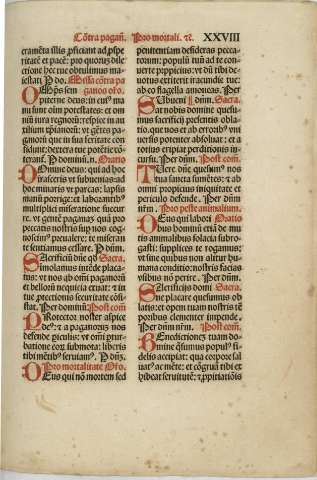 Cōtra paganꝰ. Pro mortali. ⁊c. XXVIII
cramēta illis ꝓficiant ad ꝓspe
ritatē et pacē: pro quoꝝ dile
ctione hec tue obtulimus ma
iestati. P do. Missa cōtra pa
Omps̄ sem ganos ofo.
piterne deus: in cuiꝰ ma
nu sunt oīm potestates: et om
niū iura regnoꝝ: respice in au
xiliuꝫ xp̄ianoꝝ: vt gētes pa
ganoꝝ que in sua feritate con
fidunt: dextere tue potētie cō
terant. P dominū.n. Oratio
Omnine deus: qui ad hoc
irasceris vt subuenias: ad
hoc minaris vt parcas: lapsis
manū porrige: et laborantibꝰ
multiplici miseratione succur
re. vt gente paganaꝫ quā pro
peccatis nostris sup nos cog-
noscimꝰ preualere: te miseran
te sentiamus cessare. P dn̄m.
Sacrificiū dn̄e qd̄ Sacra.
imolamus intēde placa-
tus: vt nos ab om̄i paganorū
et bellorū nequicia eruat: ⁊ in
tue ꝓtectionis securitate cōsti
tuat. Per dominū. Post com̄
Protector noster aspice
de⁹: ⁊ a paganorꝫ nos
defende ꝑiculis: vt om̄i ꝑtur-
batione eorꝫ submota: liberis
tibi mētibꝰ seruiamꝰ. P dn̄ꝫ.
Pro mortalitate Ofo.
Deus qui nō mortem sed
penitentiam desideras pecca-
torum: populū tuū ad te con-
uerte propicius: vt dū tibi de-
uotus extiterit iracundie tue:
ab eo flagella amoueas. Per
Subueni ⁊ dn̄m. Sacra.
at nobis domine quesu-
mus sacrificij presentis obla-
tio. que nos et ab erroribꝰ vni
uersis potenter absoluat: et a
totius eripiat perditionis in-
cursu. Per dn̄m. Post com̄.
Tuere dn̄e quesum⁹ nos
tua sancta sumētes: ⁊ ab
omni propicius iniquitate et
periculo defende. Per dn̄m
nr̄m. Pro peste animalium.
Deus qui labori Oratio
bus hominū etiā de mu
tis animalibus solacia subro-
gasti: supplices te rogamus:
vt sine quibus non alitur hu-
mana conditio: nostris facias
vsibus nō perire. Per dn̄m.
Sacrificijs domi Sacra.
ne placare quesumus ob
latis: et opem tuam nostris tē
poribus clementer impende.
Per dn̄m nr̄m. Post com̄.
Benedictiones tuam do-
mine q̄sumus populꝰ fi-
delis accipiat: qua corpore sal
uatꝰ ac mēte: et cōgruā tibi ex
hibeat seruitutē: ⁊ ꝓpitiatiōis